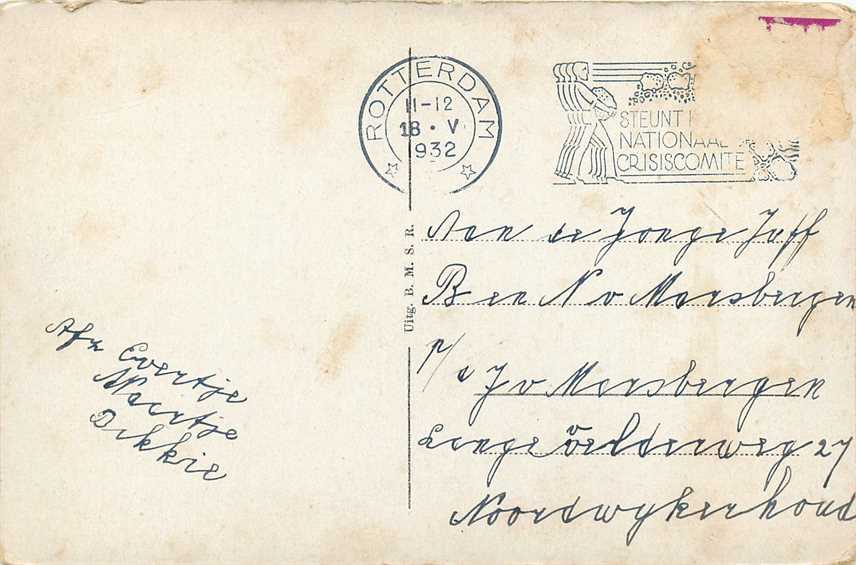 ROTTERDAM
11-12
18 · V
1932
STEUNT
NATIONAAL
CRISISCOMITE
Uitg. B. M. S. R.
Aan de Jonge Juff
B en N v Meersbergen
p/a J v Meersbergen
Lange velderweg 27
Noordwykerhout
Afz Evertje
Maertje
Dikkie